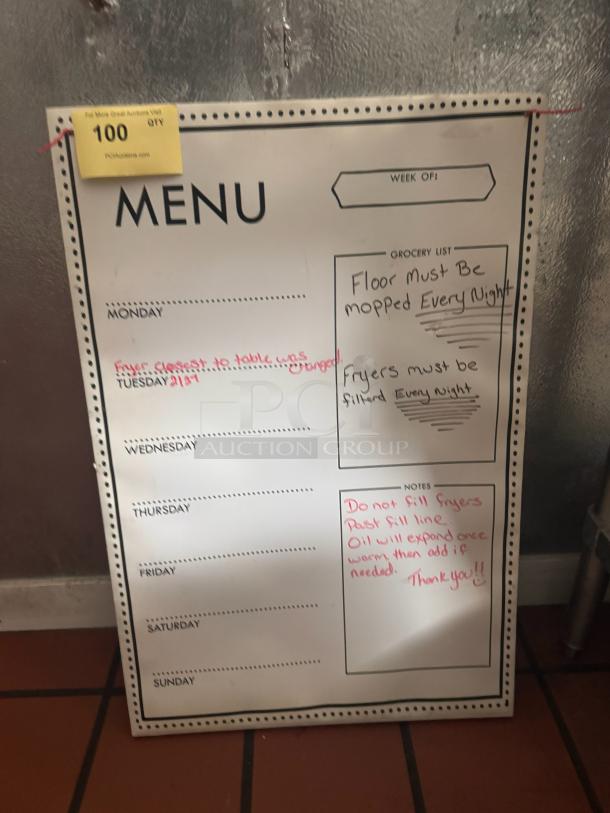 For More Great Auctions Visit
100 QTY
PCIAuctions.com
MENU
WEEK OF:
MONDAY
Fryer closest to table was
changed
TUESDAY
WEDNESDAY
THURSDAY
FRIDAY
SATURDAY
SUNDAY
GROCERY LIST
Floor Must Be
mopped Every Night
Fryers must be
filterd Every Night
NOTES
Do not fill fryers
Past fill line
Oil will expand once
warm then add if
needed.
Thank you!!
PCI
AUCTION GROUP